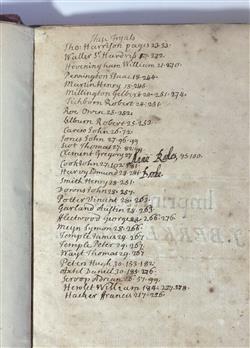 Tho: Harrison pages 23.33.
Waller Sr Hardris 17. 282.
Heveningham William 21. 270.
Pennington Isaac 18. 244.
Martin Henry 18. 246.
Millington Gilbert 20. 251. 274.
Tichborn Robert 24. 251.
Roe Owen 23. 252.
Lilburn Robert 25. 252.
Carew John 26. 72.
Jones John 27. 96. 99
Scot Thomas 27. 82. 99
Clement Gregory
Cook John
Harvy Edmund 28.
Smith Henry 28.
Downs John 28. 257.
Potter Vinsent 28. 263.
Garland Austin 28. 263.
Fleetwood George 28. 266. 276.
Meyn Symon 28. 266.
Temple James 29. 267.
Temple Peter 29. 267.
Wayt Thomas 29. 267
Peters Hugh 30. 153. 182.
Axtel Daniell 30. 185.
Scroop Adrean 57. 99.
Hewlet William 184. 227. 278.
Hacker Francis 217. 226.